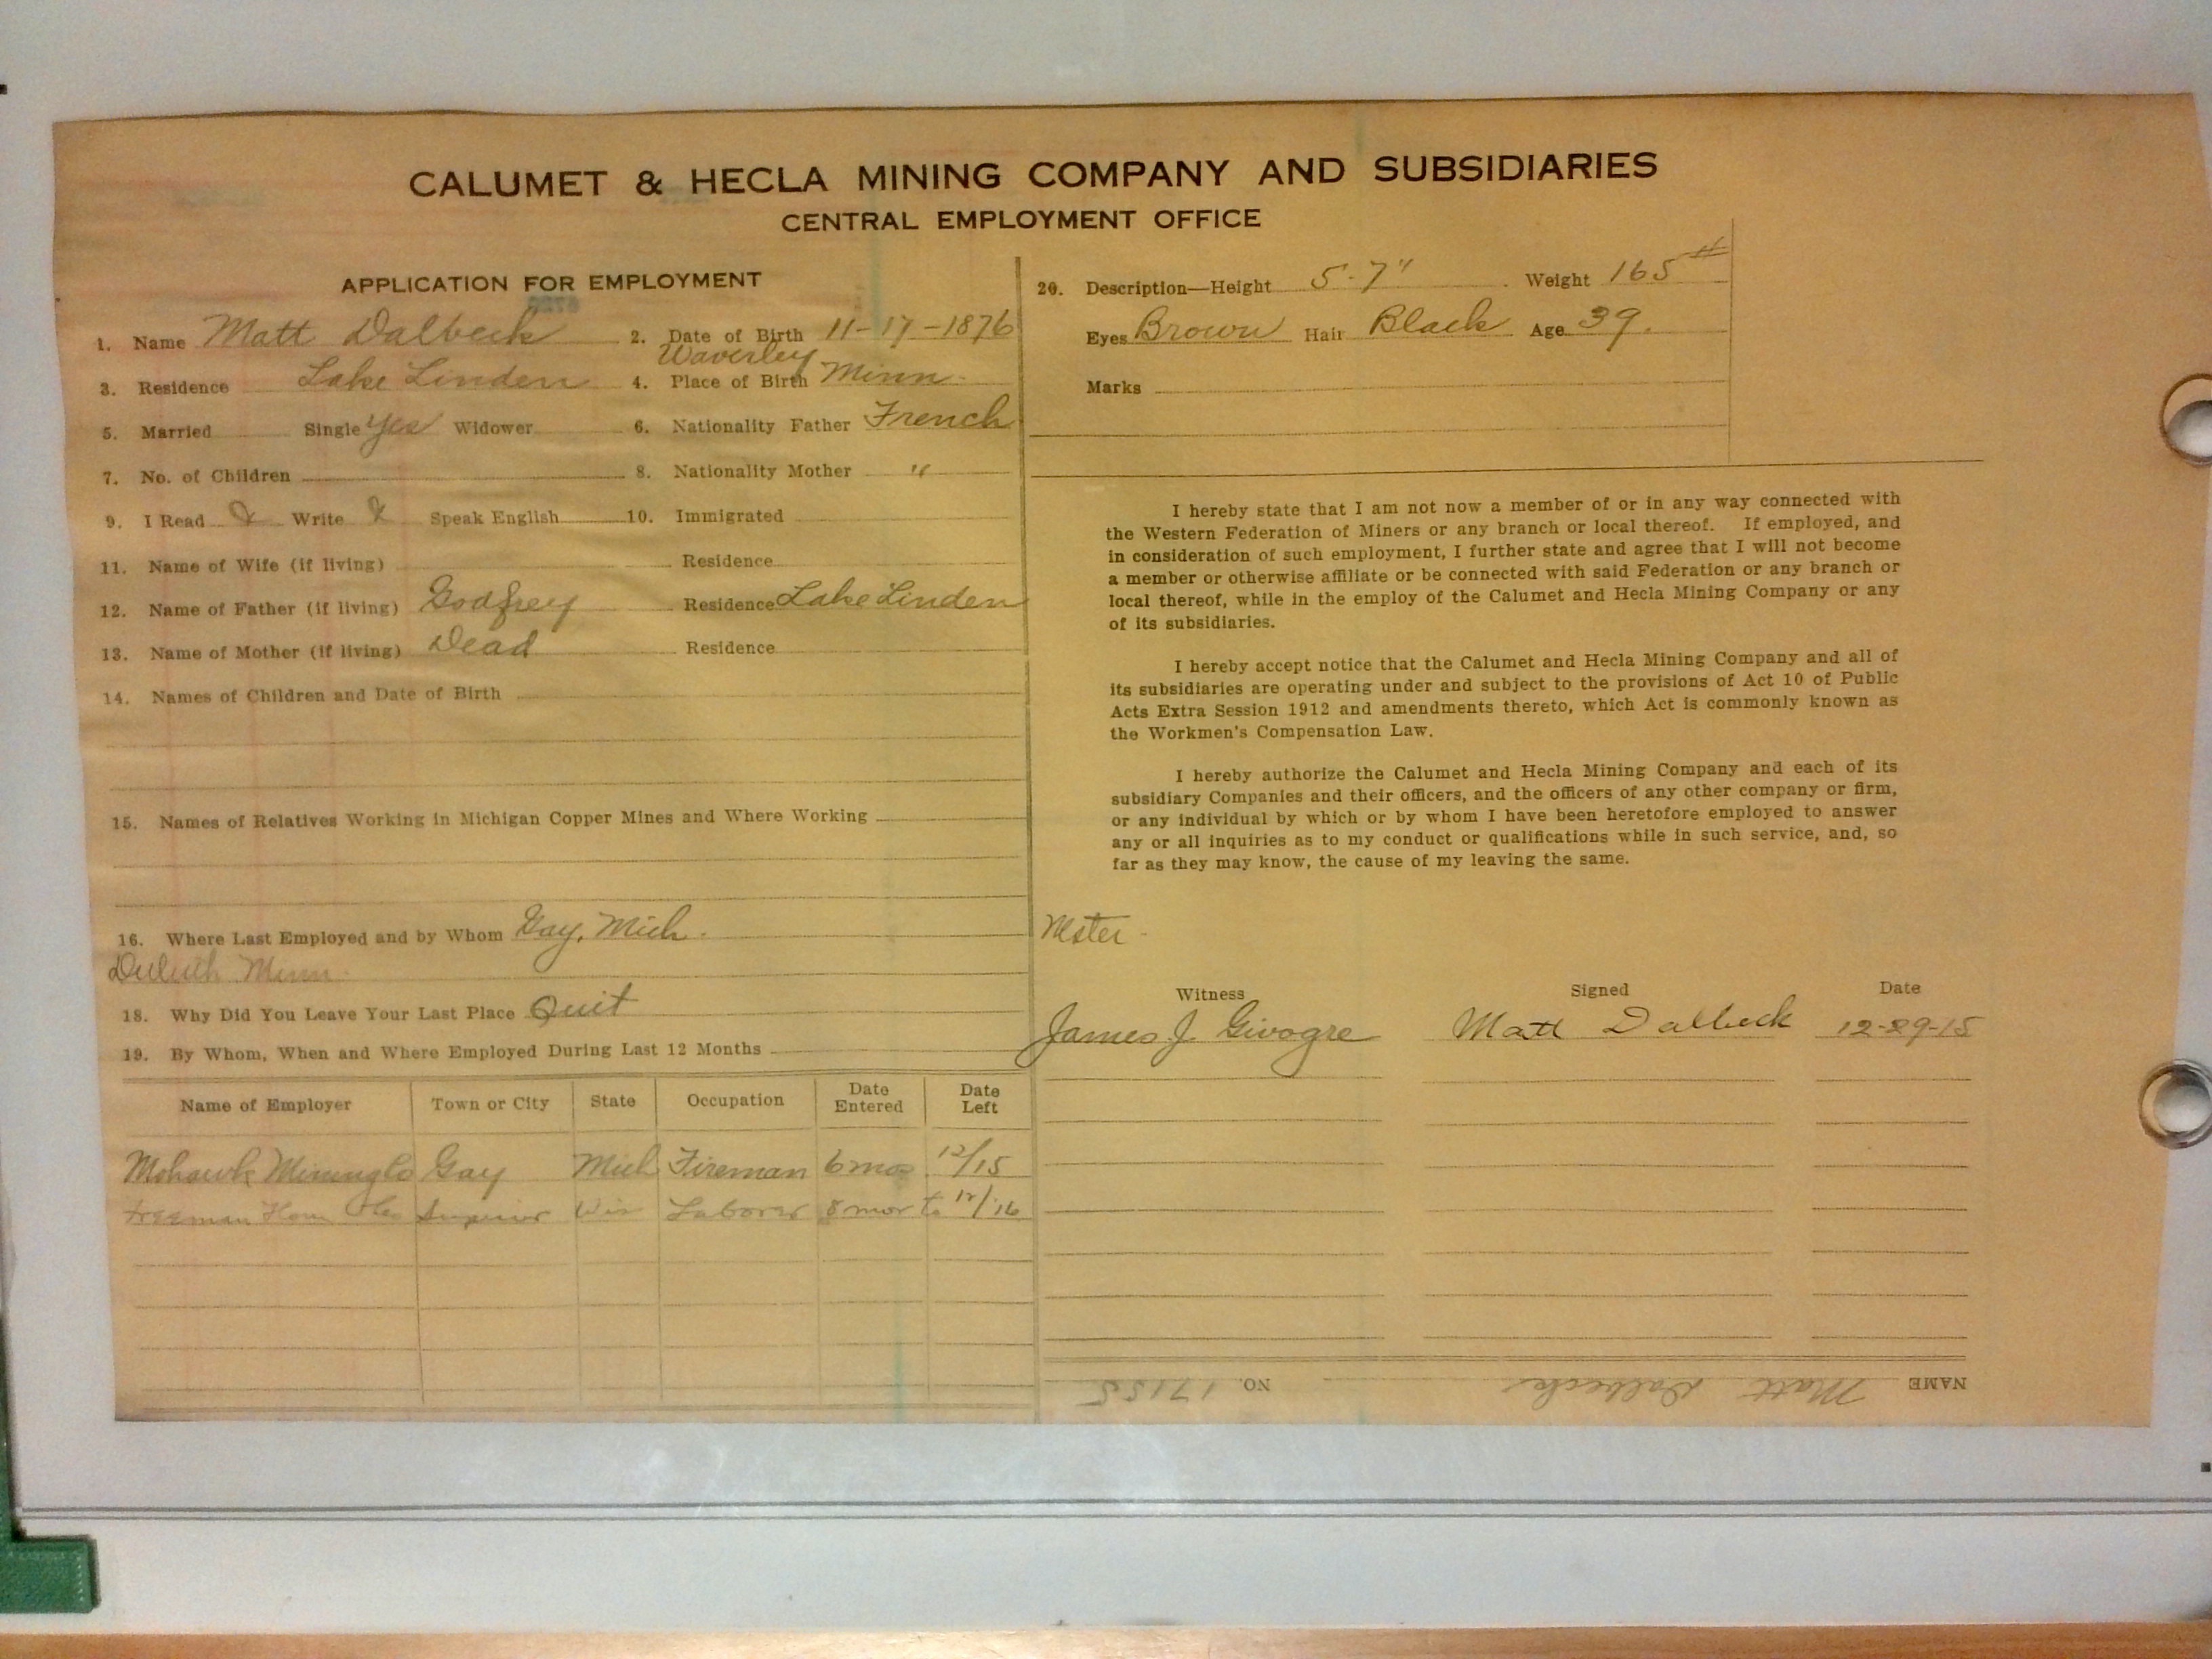 CALUMET & HECLA MINING COMPANY AND SUBSIDIARIES
CENTRAL EMPLOYMENT OFFICE
APPLICATION FOR EMPLOYMENT
1. Name Matt Dalbeck 2. Date of Birth 11-17-1876
3. Residence Lake Linden 4. Place of Birth Waverley Minn.
5. Married Single Yes Widower 6. Nationality Father French
7. No. of Children 8. Nationality Mother "
9. I Read Write Speak English 10. Immigrated
11. Name of Wife (if living) Residence
12. Name of Father (if living) Godfrey Residence Lake Linden
13. Name of Mother (if living) Dead Residence
14. Names of Children and Date of Birth
15. Names of Relatives Working in Michigan Copper Mines and Where Working
16. Where Last Employed and by Whom Gay, Mich.
Duluth Minn.
18. Why Did You Leave Your Last Place Quit
19. By Whom, When and Where Employed During Last 12 Months
Name of Employer Town or City State Occupation Date Entered Date Left
Mohawk Mining Co Gay Mich Fireman 6 mos 12/15
Freeman Superior Wis Laborer 8 mos to 12/16
20. Description—Height 5-7" Weight 165 #
Eyes Brown Hair Black Age 39.
Marks
I hereby state that I am not now a member of or in any way connected with
the Western Federation of Miners or any branch or local thereof. If employed, and
in consideration of such employment, I further state and agree that I will not become
a member or otherwise affiliate or be connected with said Federation or any branch or
local thereof, while in the employ of the Calumet and Hecla Mining Company or any
of its subsidiaries.
I hereby accept notice that the Calumet and Hecla Mining Company and all of
its subsidiaries are operating under and subject to the provisions of Act 10 of Public
Acts Extra Session 1912 and amendments thereto, which Act is commonly known as
the Workmen's Compensation Law.
I hereby authorize the Calumet and Hecla Mining Company and each of its
subsidiary Companies and their officers, and the officers of any other company or firm,
or any individual by which or by whom I have been heretofore employed to answer
any or all inquiries as to my conduct or qualifications while in such service, and, so
far as they may know, the cause of my leaving the same.
Witness Signed Date
James J. Givogre Matt Dalbeck 12-29-15
NAME Matt Dalbeck NO. 17155